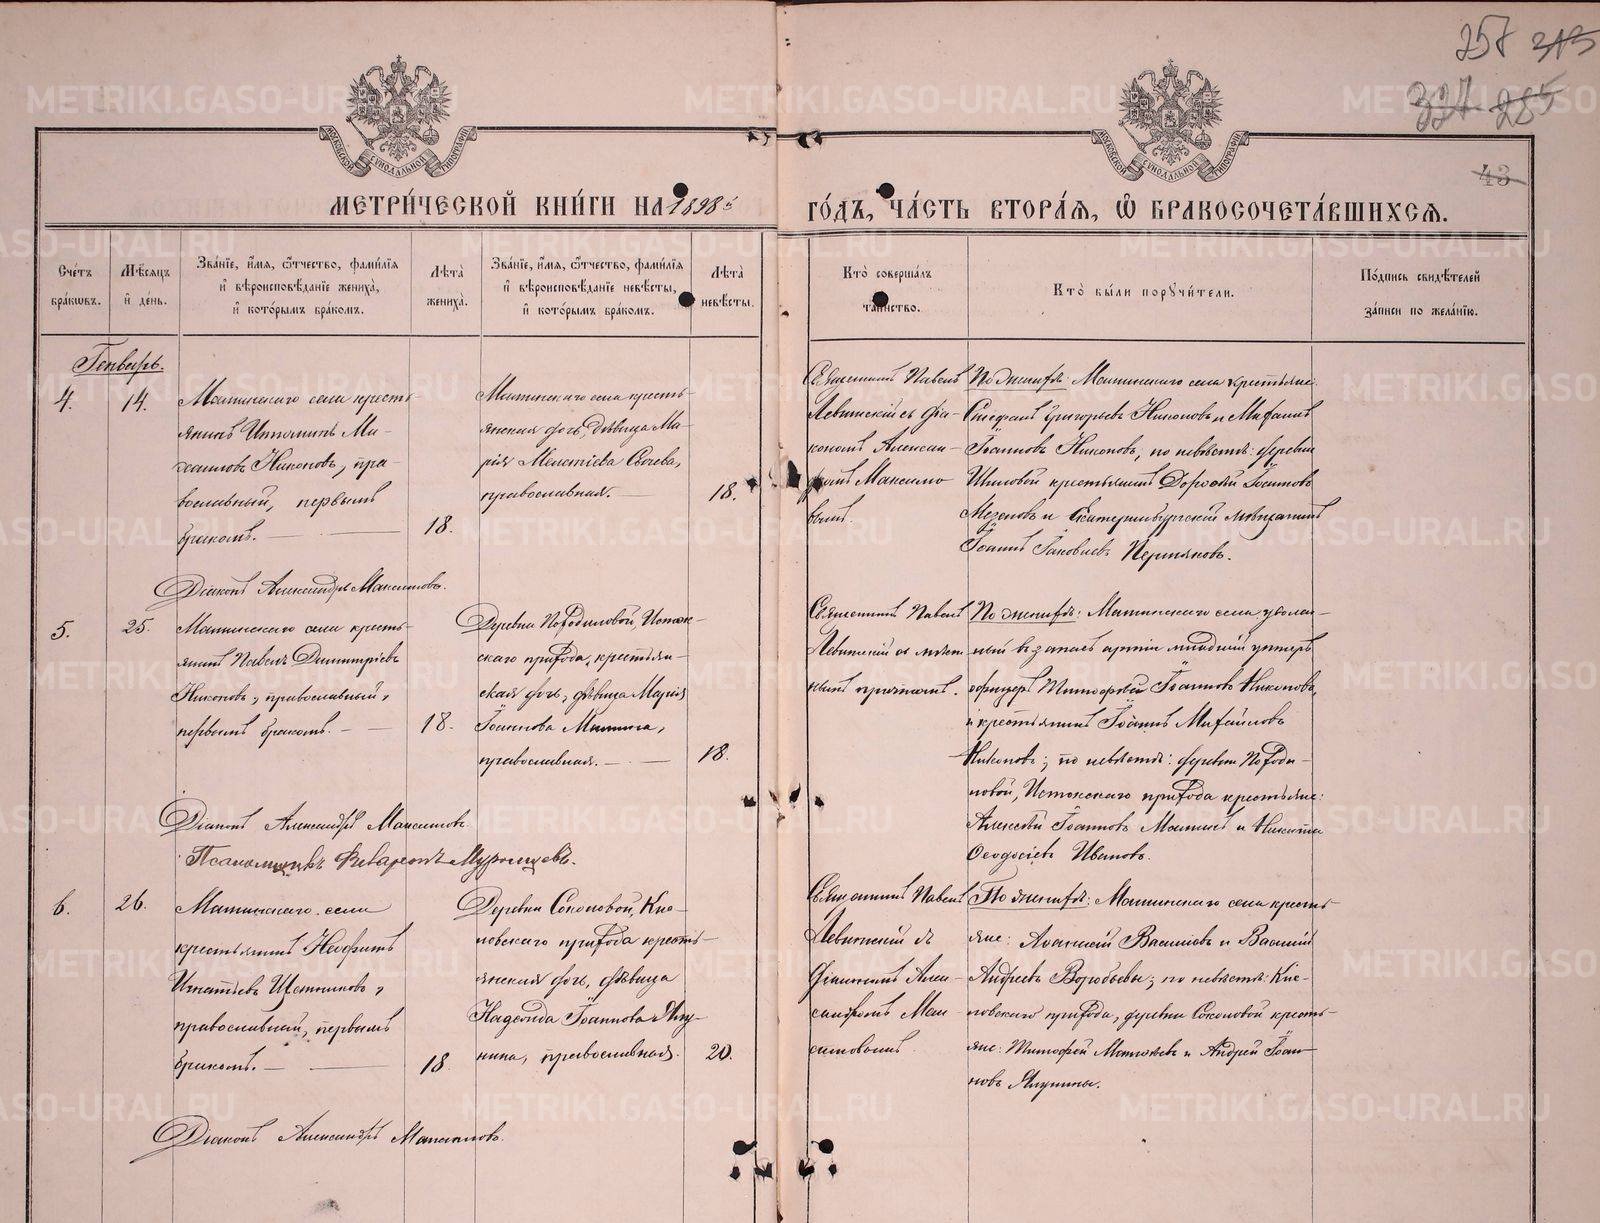 257 313
337 285
43
МОСКОВСКОЙ СѴНОДАЛЬНОЙ ТИПОГРАФІИ
МОСКОВСКОЙ СѴНОДАЛЬНОЙ ТИПОГРАФІИ
МЕТРИ́ЧЕСКОЙ КНИ́ГИ НА 1898й
ГО́ДЪ, ЧА́СТЬ ВТОРА́Я, Ѽ БРАКОСОЧЕТА́ВШИХСЯ.
Сче́тъ
бра́кωвъ.
Мѣ́сяцъ
и҆ де́нь.
Зва́нїе, и҆́мя, ѻ҆́тчество, фами́лїя
и҆ вѣроисповѣ́данїе жениха̀,
и҆ кото́рымъ бра́комъ.
Лѣ́та
жениха̀.
Зва́нїе, и҆́мя, ѻ҆́тчество, фами́лїя
и҆ вѣроисповѣ́данїе невѣ́сты,
и҆ кото́рымъ бра́комъ.
Лѣ́та
невѣ́сты.
Кто̀ соверша́лъ
та́инство.
Кто̀ бы́ли порꙋчи́тели.
По́дпись свидѣ́телей
за́писи по жела́нїю.
Генварь.
4.
14.
Маминскаго села кресть-
янинъ
Ми-
хаиловъ Никоновъ, пра-
вославный, первымъ
бракомъ.
18.
Маминскаго села кресть-
янская дочь, дѣвица Ма-
рія
православная.
18.
Священникъ Павелъ
Левинскій съ діа-
кономъ Алексан-
дромъ Максимо
вымъ.
По женихѣ: Маминскаго села крестьяне:
Стефанъ Григорьевъ Никоновъ и Михаилъ
Іоанновъ Никоновъ, по невѣстѣ: деревни
Шиловой крестьянинъ Дорофей Іоанновъ
Мезеновъ и Екатеринбургскій мѣщанинъ
Іоаннъ Іаковлевъ Пермяковъ.
Діаконъ Александръ Максимовъ.
5.
25.
Маминскаго села кресть-
янинъ Павелъ Димитріевъ
Никоновъ, православный,
первымъ бракомъ.
18.
Деревни Походиловой, Исток-
скаго прихода, крестьян-
ская дочь, дѣвица Марія
Іоаннова Мамина,
православная.
18.
Священникъ Павелъ
Левинскій съ мѣст
нымъ причтомъ.
По женихѣ: Маминскаго села уволен-
ный въ запасъ арміи младшій унтеръ
офицеръ Тимофей Іоанновъ Никоновъ,
и крестьянинъ Іоаннъ Михайловъ
Никоновъ; по невѣстѣ: деревни Походи-
ловой, Истокскаго прихода крестьяне:
Алексѣй Іоанновъ Маминъ и Никита
Ѳеодосіевъ Ивановъ.
Діаконъ Александръ Максимовъ.
Псаломщикъ Муромцевъ.
6.
26.
Маминскаго села
крестьянинъ Неофитъ
Игнатьевъ Щетниковъ,
православный, первымъ
бракомъ.
18.
Деревни Соколовой, Кис-
ловскаго прихода кресть-
янская дочь, дѣвица
Надежда Іоаннова Ялу-
нина, православная.
20.
Священникъ Павелъ
Левинскій съ
діакономъ Алек-
сандромъ Мак-
симовымъ
По женихѣ: Маминскаго села кресть-
яне: Василіевъ и Василій
Андреевъ Воробьевы; по невѣстѣ: Кис-
ловскаго прихода, деревни Соколовой кресть-
яне: Тимофей и Андрей Іоан-
новъ Ялунины.
Діаконъ Александръ Максимовъ.
METRIKI.GASO-URAL.RU